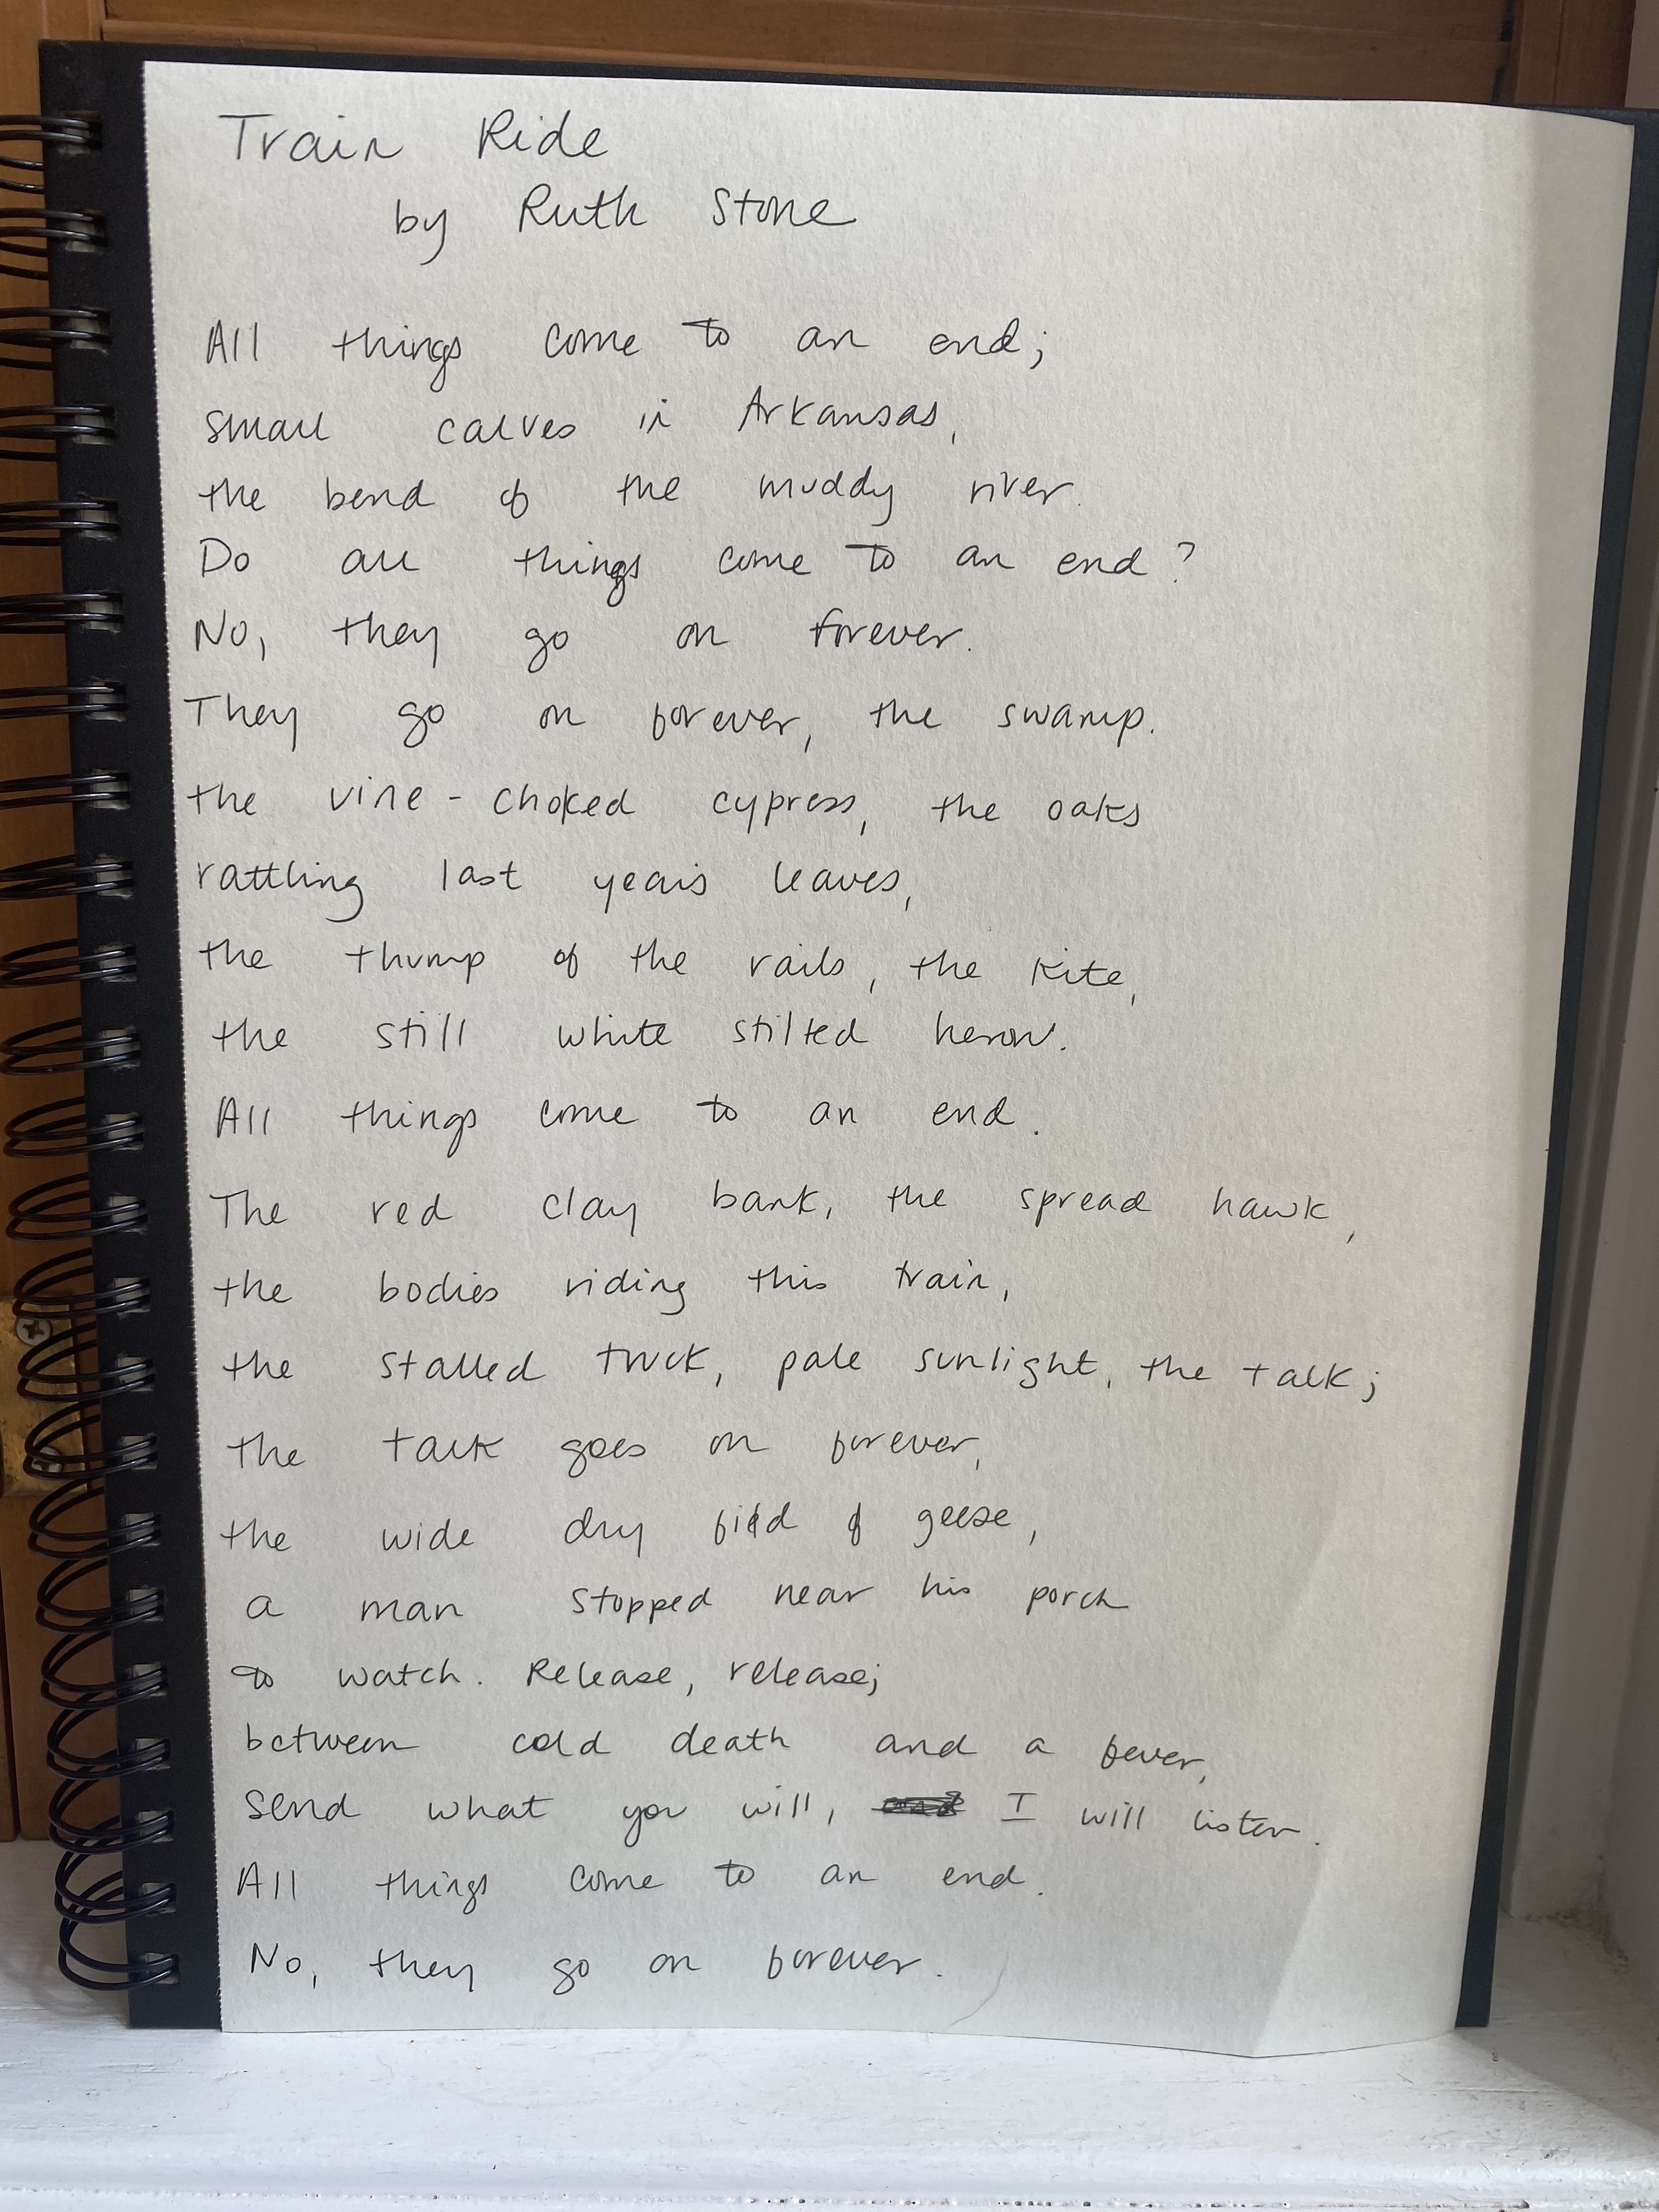 Train Ride
by Ruth Stone
All things come to an end;
small calves in Arkansas,
the bend of the muddy river.
Do all things come to an end?
No, they go on forever.
They go on forever, the swamp.
the vine-choked cypress, the oaks
rattling last year's leaves,
the thump of the rails, the kite,
the still white stilted heron.
All things come to an end.
The red clay bank, the spread hawk,
the bodies riding this train,
the stalled truck, pale sunlight, the talk;
the talk goes on forever,
the wide dry field of geese,
a man stopped near his porch
to watch. Release, release;
between cold death and a fever,
send what you will, I will listen.
All things come to an end.
No, they go on forever.